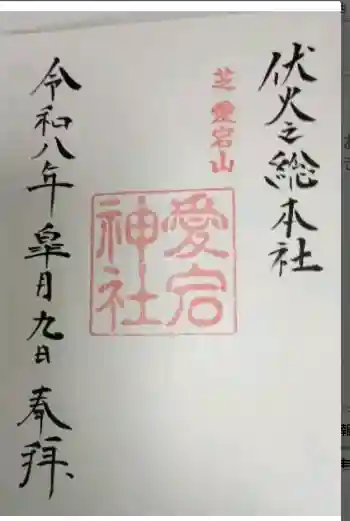 伏火之総本社
芝愛宕山
愛宕
神社
令和八年皐月九日奉拝